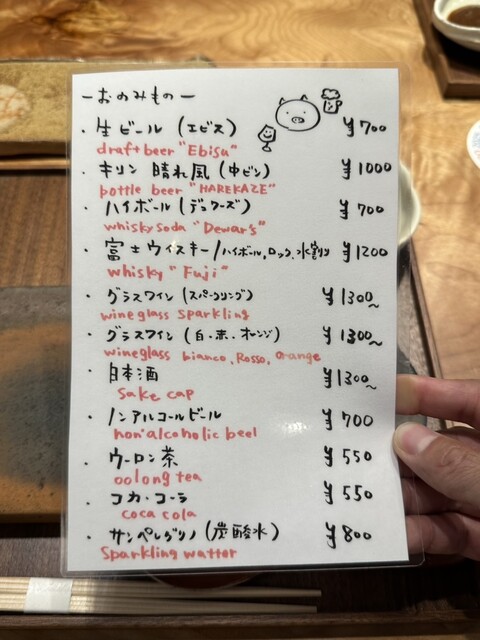 ーおのみものー
・生ビール (エビス) ¥700
draft beer "Ebisu"
・キリン 晴れ風 (中ビン) ¥1000
bottle beer "HAREKAZE"
・ハイボール (デュワーズ) ¥700
whisky soda "Dewar's"
・富士ウイスキー/ハイボール,ロック,水割り ¥1200
whisky "Fuji"
・グラスワイン (スパークリング) ¥1300~
wine glass sparkling
・グラスワイン (白・赤・オレンジ) ¥1300~
wine glass bianco, Rosso, orange
・日本酒 ¥1300~
sake cap
・ノンアルコールビール ¥700
non alcoholic beel
・ウーロン茶 ¥550
oolong tea
・コカ・コーラ ¥550
coca cola
・サンペレグリノ (炭酸水) ¥800
Sparkling watter